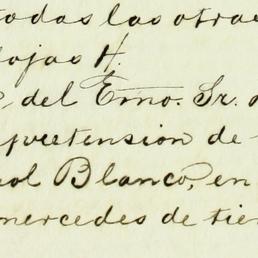 todas las otras
fojas H.
del Emo. Sr.
pretension de
ol Blanco, en
mercedes de tier